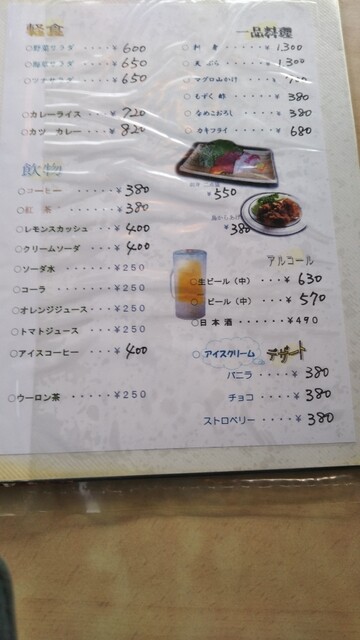 軽食
○野菜サラダ ････¥600
○海草サラダ ････¥650
○ツナサラダ ････¥650
○カレーライス ･･¥720
○カツ カレー ･･･¥820
飲物
○コーヒー ･････¥380
○紅 茶 ･････¥380
○レモンスカッシュ ･･¥400
○クリームソーダ ･･¥400
○ソーダ水 ･････¥250
○コーラ ･･････¥250
○オレンジジュース･･･¥250
○トマトジュース････¥250
○アイスコーヒー ･･¥400
○ウーロン茶 ･････¥250
一品料理
○刺 身 ････¥1,300
○天 ぷら ････¥1,300
○マグロ山かけ ･･･¥
○もずく 酢 ････¥380
○なめこおろし ･･･¥380
○カキフライ ････¥680
¥550
鳥からあげ
¥380
アルコール
○生ビール（中）･･¥630
○ ビール（中）･･¥570
○日 本 酒 ･･････¥490
○アイスクリーム デザート
バニラ ････¥380
チョコ ････¥380
ストロベリー ････¥380